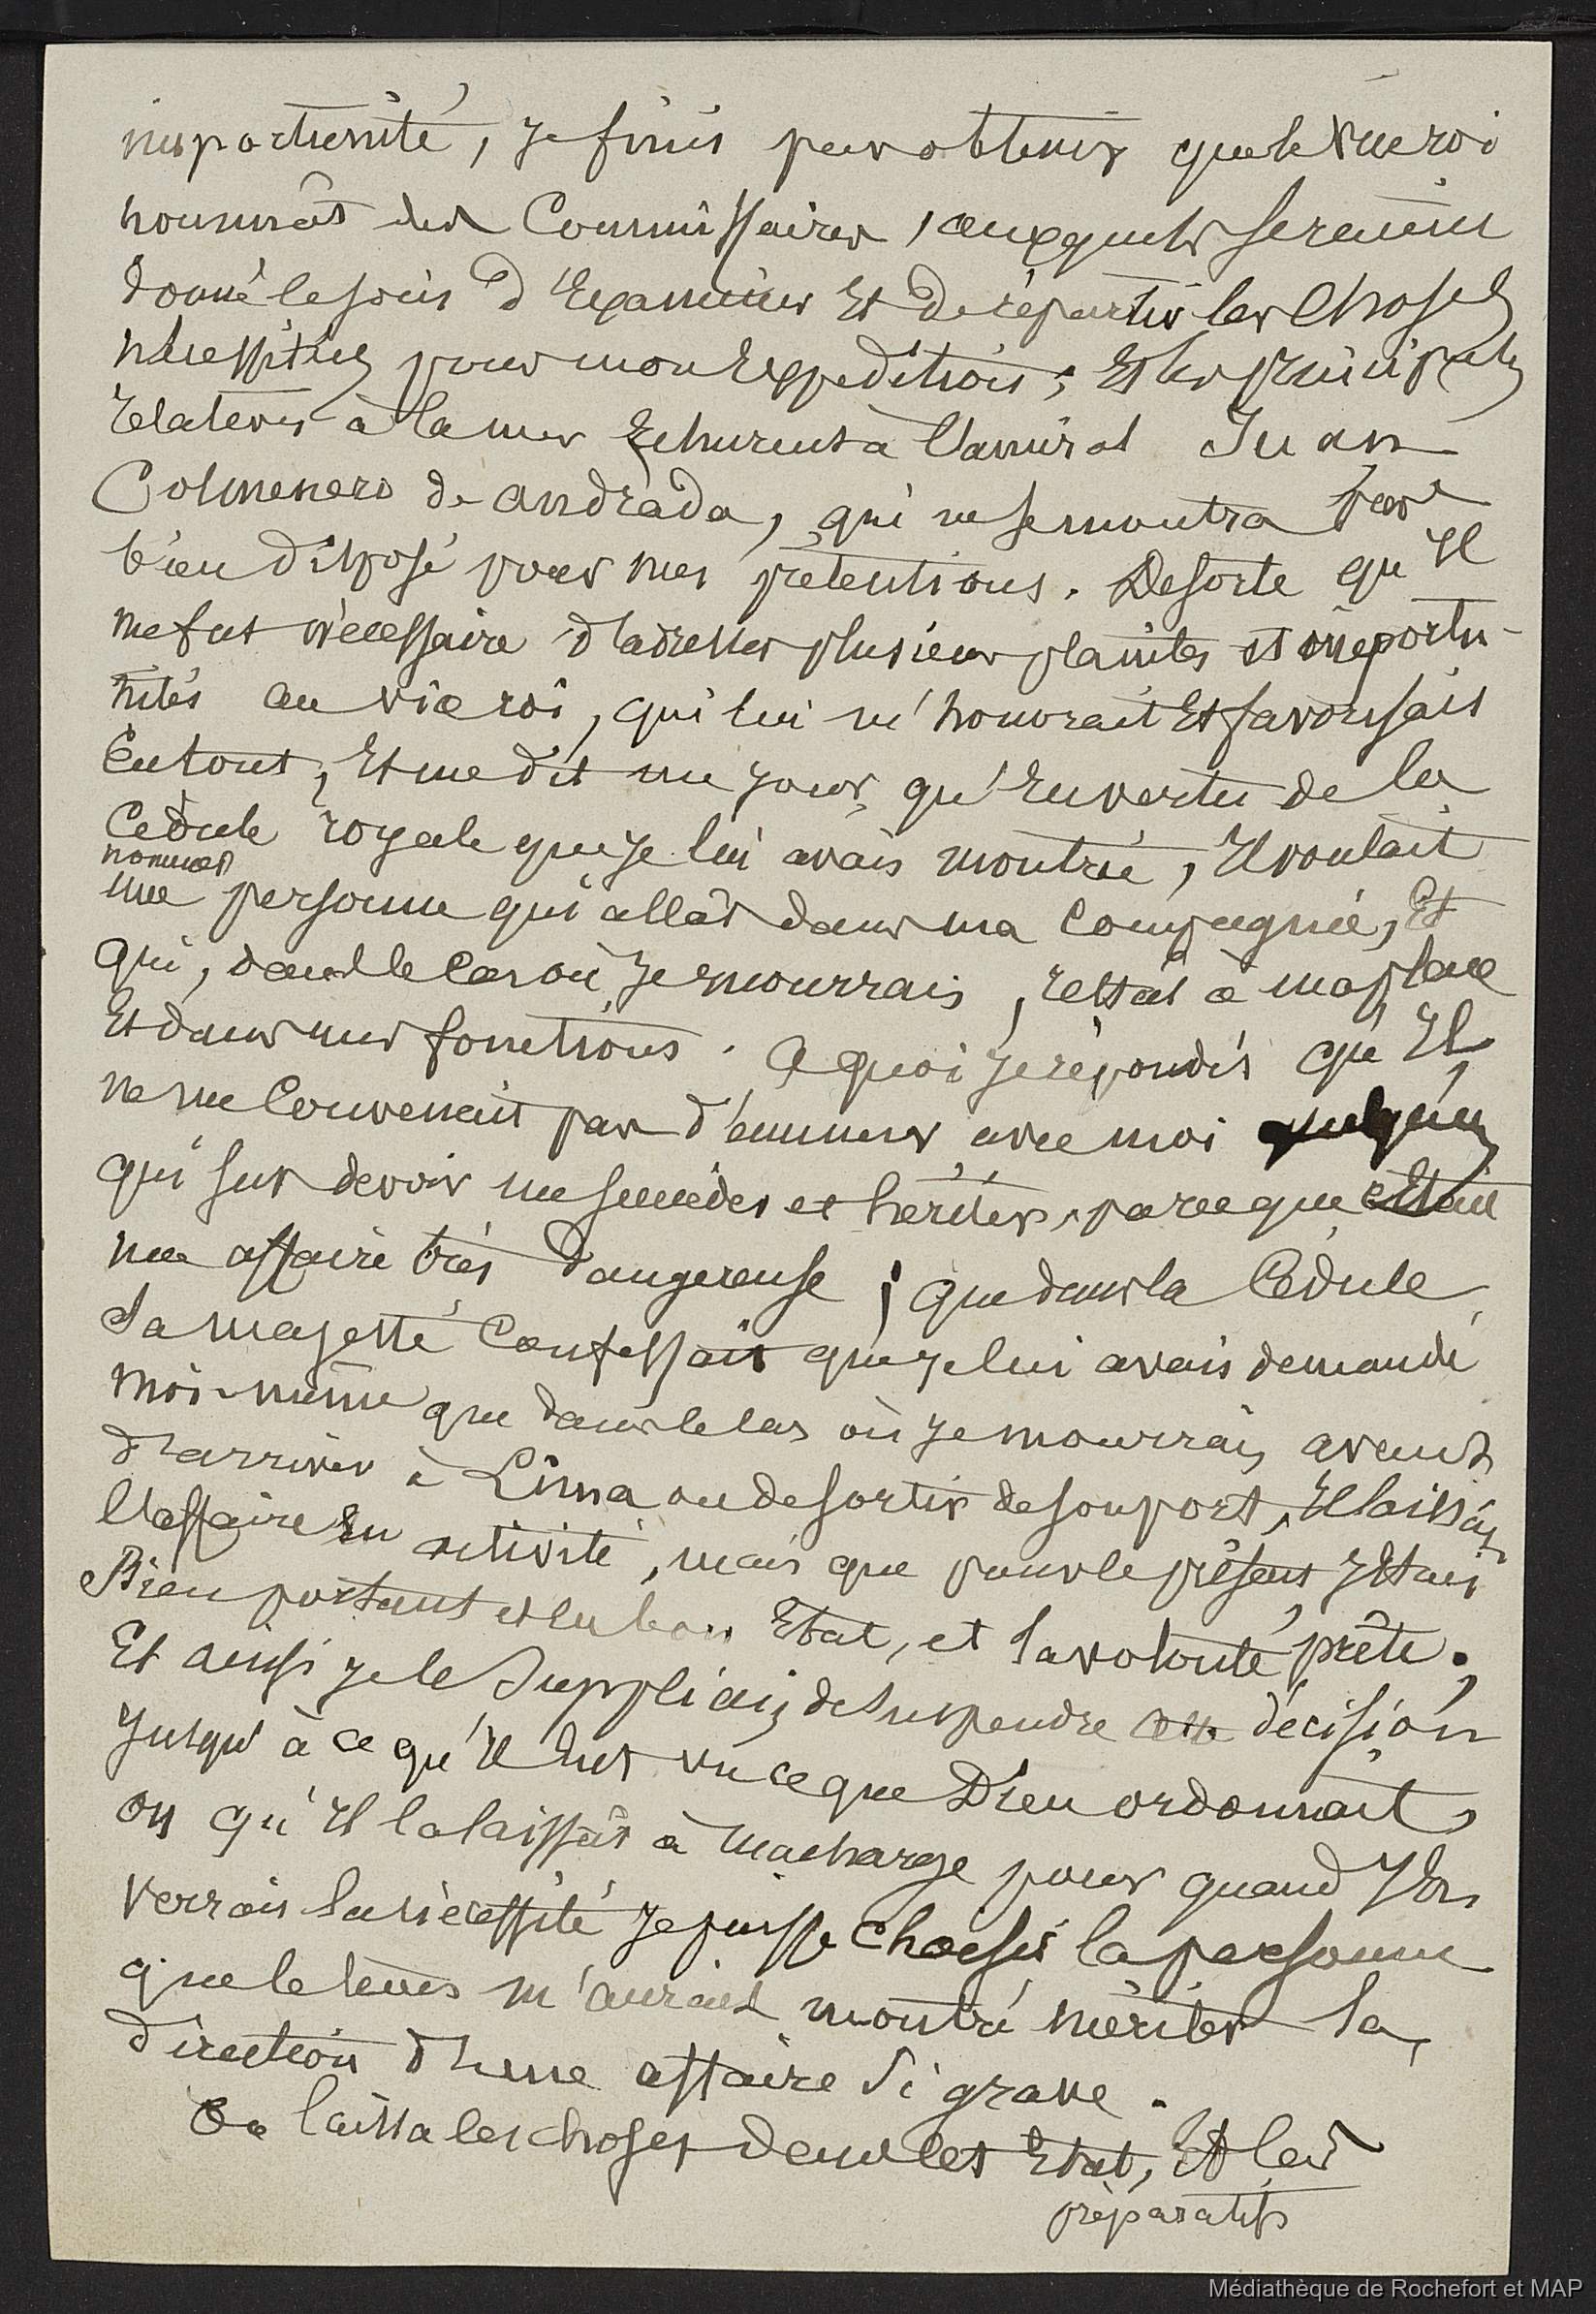 importunité, je finis par obtenir que le Vice roi
nommât des Commissaires, auxquels seraient
donné le soin d'Examiner Et de répartir les choses
nécessités pour mon Expédition; Et les principales
relatives à la mer Echurent à l'amiral Juan
Colmenero de Andrada, qui ne se montra pas
bien disposé pour mes prétentions. De sorte qu'Il
me fut nécessaire d'adresser plusieurs plaintes et importu-
nités au vice roi, qui lui m'honorait Et favorisait
En tout, Et me dit un jour, qu'En vertu de la
Cédule royale que je lui avais montrée, Il voulait
nommer
une personne qui allât dans ma Compagnie, Et
qui, dans le cas où je mourrais, restât à ma place
Et dans mes fonctions. A quoi je répondis qu'Il
ne me Convenait pas d'emmener avec moi quelqu'un
qui sut devoir me succéder et hériter, parce que c'Etait
une affaire très dangereuse; que dans la Cédule
Sa majesté Confessait que je lui avais demandé
moi-même que dans le cas où je mourrais avant
d'arriver à Lima ou de sortir de son port, Il laissât
l'affaire En activité, mais que pour le présent j'Etais
Bien portant et en bon Etat, et la volonté prête.
Et ainsi je le Suppliais de suspendre cette décision
jusqu'à ce qu'Il eut vu ce que Dieu ordonnait,
ou qu'Il la laissât à ma charge pour quand j'En
verrais la nécessité je puisse choisir la personne
que le temps m'aurait montré mériter la
direction d'une affaire si grave.
On laissa les choses dans cet Etat, Et les
préparatifs
Médiathèque de Rochefort et MAP